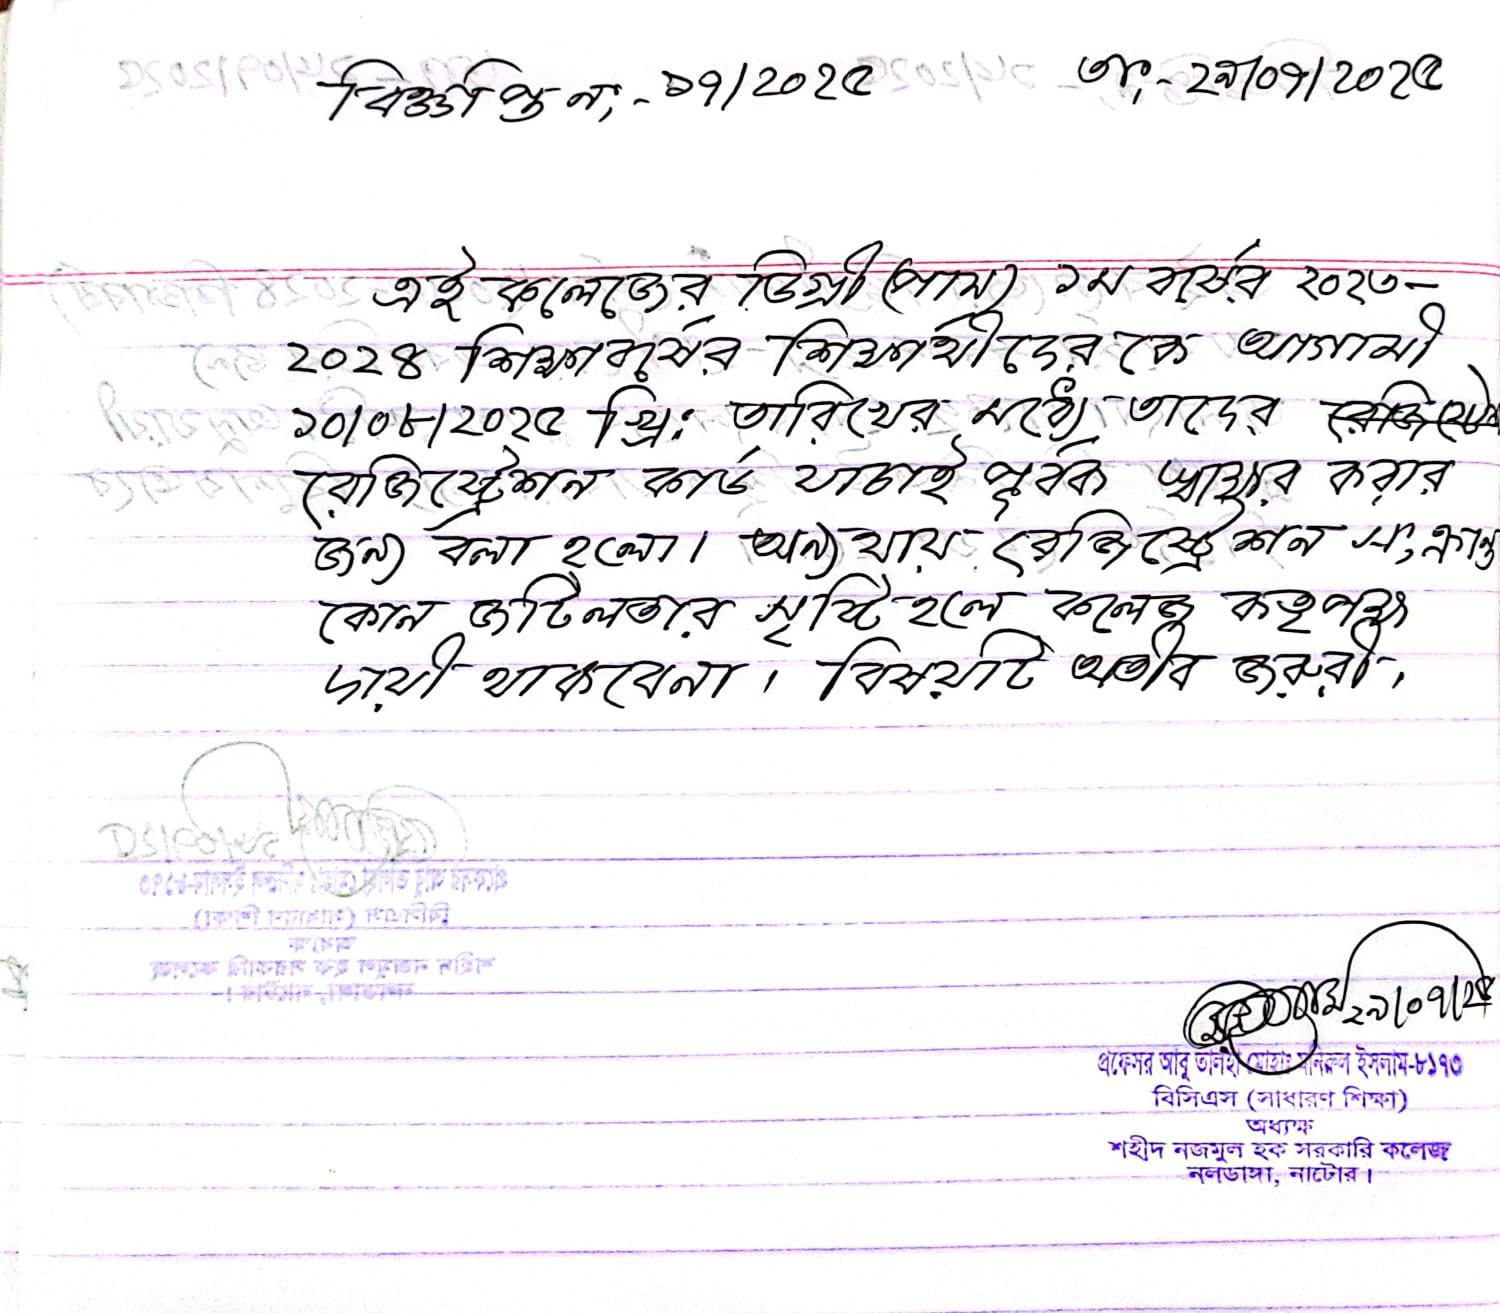 বিজ্ঞপ্তি নং - ১৭/২০২৫ তাং - ২৯/০৭/২০২৫
এই কলেজের ডিগ্রী (পাস) ১ম বর্ষের ২০২৩-
২০২৪ শিক্ষাবর্ষের শিক্ষার্থীদের কে আগামী
১০/০৮/২০২৫ খ্রি: তারিখের মধ্যে তাদের
রেজিস্ট্রেশন কার্ড যাচাই পূর্বক স্বাক্ষর করার
জন্য বলা হলো। অন্যথায় রেজিস্ট্রেশন সংক্রান্ত
কোন জটিলতার সৃষ্টি হলে কলেজ কতৃপক্ষ
দায়ী থাকবেনা। বিষয়টি অতীব জরুরী।
২৯/০৭/২৫
প্রফেসর আবু তালহা মোহাঃ মনিরুল ইসলাম-৮১৭৩
বিসিএস (সাধারণ শিক্ষা)
অধ্যক্ষ
শহীদ নজমুল হক সরকারি কলেজ
নলডাঙ্গা, নাটোর।